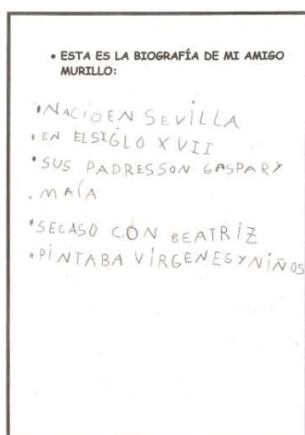 • ESTA ES LA BIOGRAFÍA DE MI AMIGO
MURILLO:
• NACIO EN SEVILLA
• EN ELSIGLO XVII
• SUS PADRESSON GASPAR Y
. MAÍA
• SECASO CON BEATRIZ
• PINTABA VÍRGENES Y NIÑOS